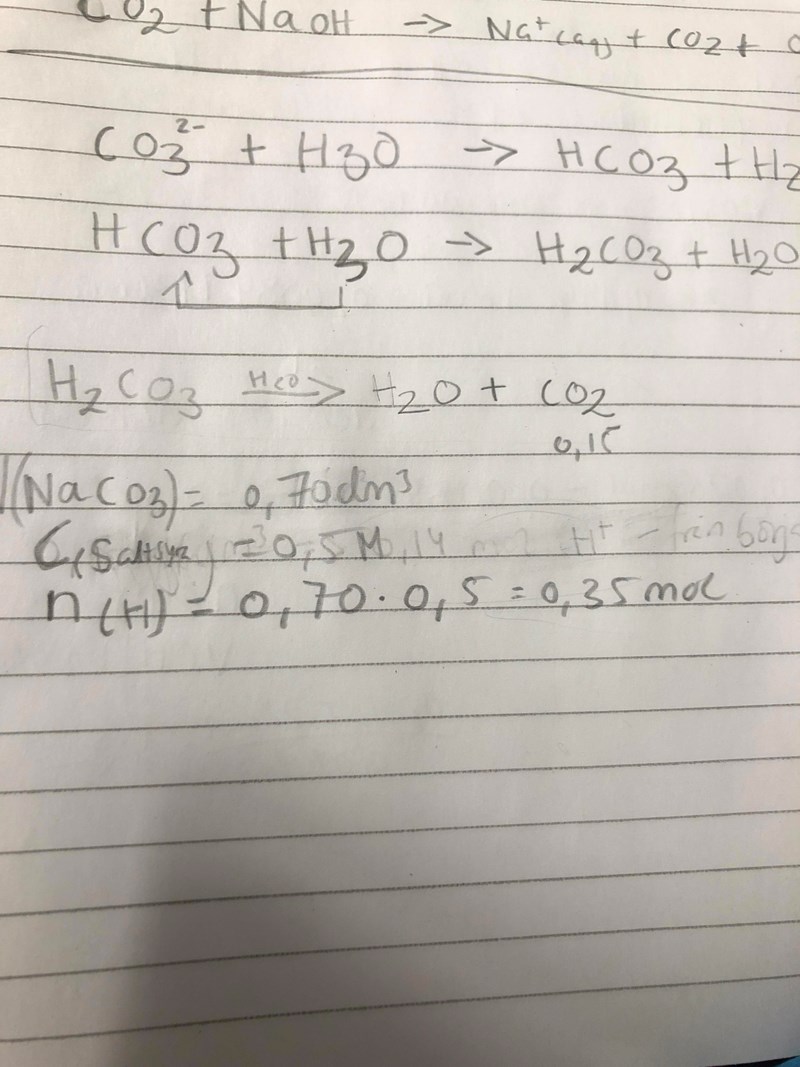 CO2 + NaOH -> Na+(aq) + CO2 +
CO3 2- + H3O -> HCO3 + H2
HCO3 + H3O -> H2CO3 + H2O
H2CO3 -> H2O + CO2
0,15
(NaCO3) = 0,70dm3
= 0,5M
n(H) = 0,70 · 0,5 = 0,35 mol